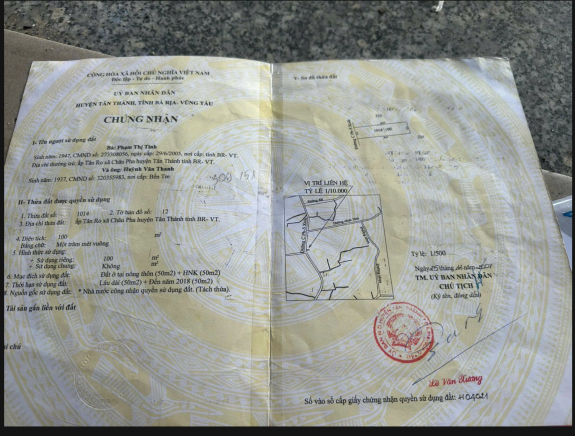 CỘNG HÒA XÃ HỘI CHỦ NGHĨA VIỆT NAM
Độc lập - Tự do - Hạnh phúc
ỦY BAN NHÂN DÂN
HUYỆN TÂN THÀNH, TỈNH BÀ RỊA- VŨNG TÀU
CHỨNG NHẬN
I- Tên người sử dụng đất
Bà: Phạm Thị Tinh
Sinh năm: 1947, CMND số: ngày cấp: 29/6/2005, nơi cấp: tỉnh BR- VT.
Địa chỉ thường trú: ấp Tân Ro xã Châu Pha huyện Tân Thành tỉnh BR- VT.
Và ông: Huỳnh Văn Thanh
Sinh năm: 1937, CMND số: 320355983, nơi cấp: Bến Tre
II- Thửa đất được quyền sử dụng
1. Thửa đất số: 1014 2. Tờ bản đồ số: 12
3. Địa chỉ thửa đất: ấp Tân Ro xã Châu Pha huyện Tân Thành tỉnh BR- VT.
4. Diện tích: 100 m²
Bằng chữ: Một trăm mét vuông
5. Hình thức sử dụng:
+ Sử dụng riêng: 100 m²
+ Sử dụng chung: Không m²
6. Mục đích sử dụng đất: Đất ở tại nông thôn (50m2) + HNK (50m2)
7. Thời hạn sử dụng đất: Lâu dài (50m2) + Đến năm 2018 (50m2)
8. Nguồn gốc sử dụng đất: * Nhà nước công nhận quyền sử dụng đất. (Tách thửa).
Tài sản gắn liền với đất
hi chú
V- Sơ đồ thửa đất
VỊ TRÍ LIÊN HỆ
TỶ LỆ 1/10.000
Tỷ lệ: 1/500
Ngày tháng năm
TM. ỦY BAN NHÂN DÂN
CHỦ TỊCH
(Ký tên, đóng dấu)
Lê Văn Tương
Số vào sổ cấp giấy chứng nhận quyền sử dụng đất: H04021